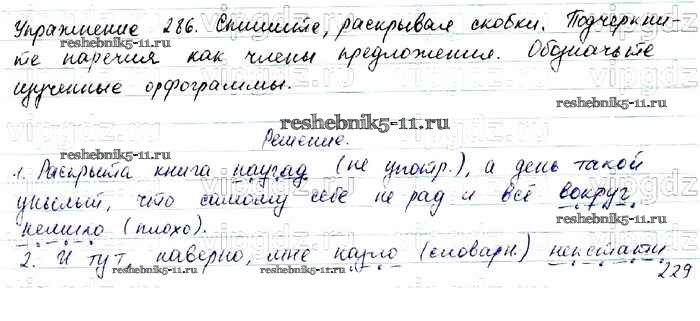 Упражнение 286. Спишите, раскрывая скобки. Подчеркни-
те наречия как члены предложения. Обозначьте
изученные орфограммы.
reshebnik5-11.ru
Решение.
1. Раскрыта книга наугад (не употр.), а день такой
унылый, что самому себе не рад и всё вокруг
немило (плохо).
2. И тут, наверно, мне назло (словарн.) некстати
229